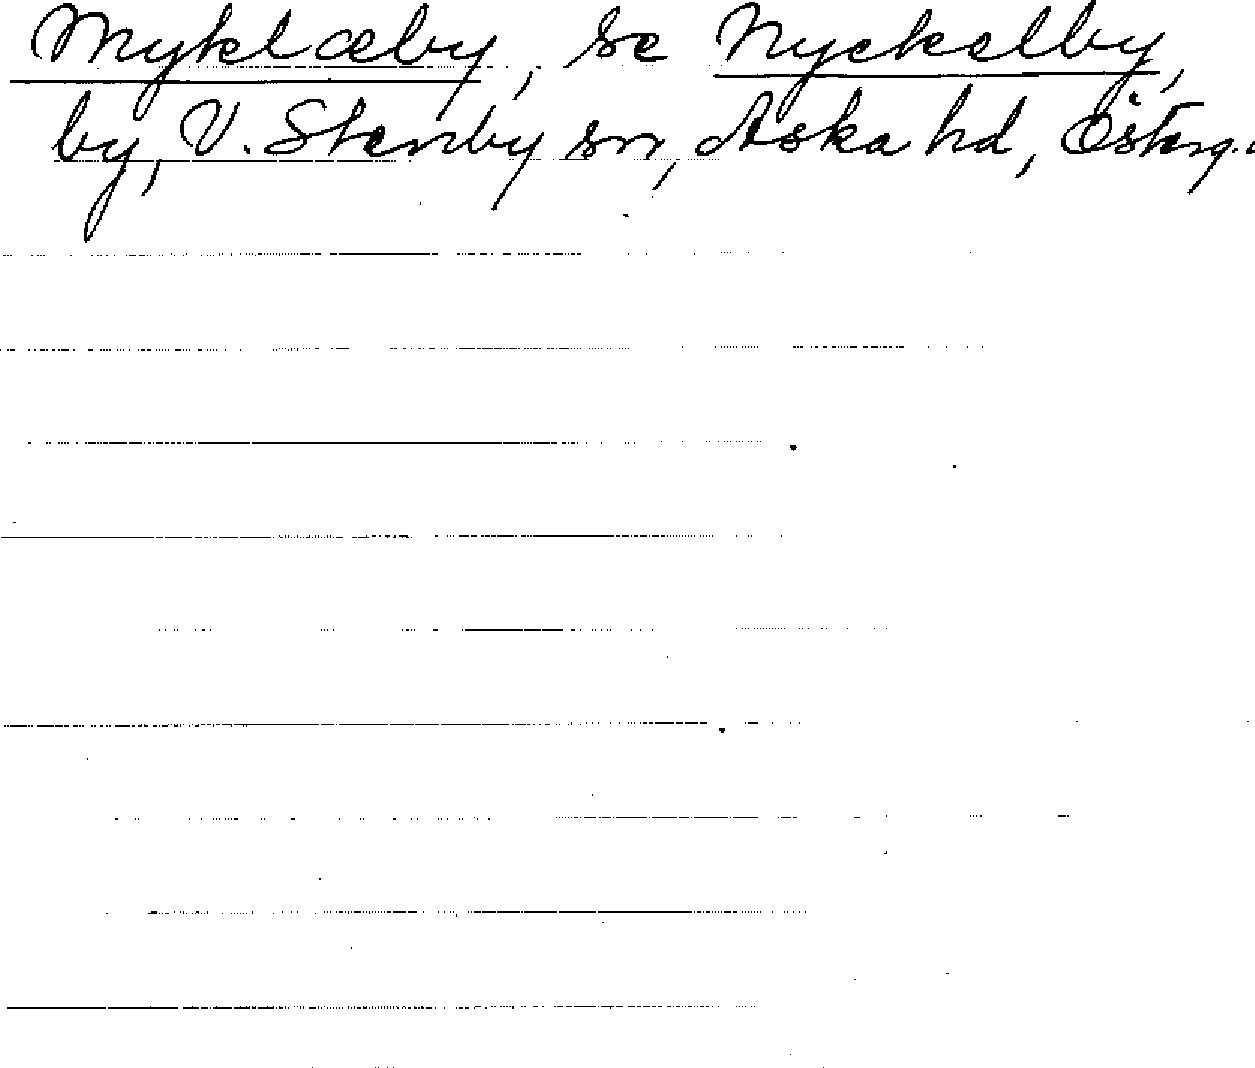 Myklæby, se Nyckelby,
by, V. Stenby sn, Aska hd, Österg.